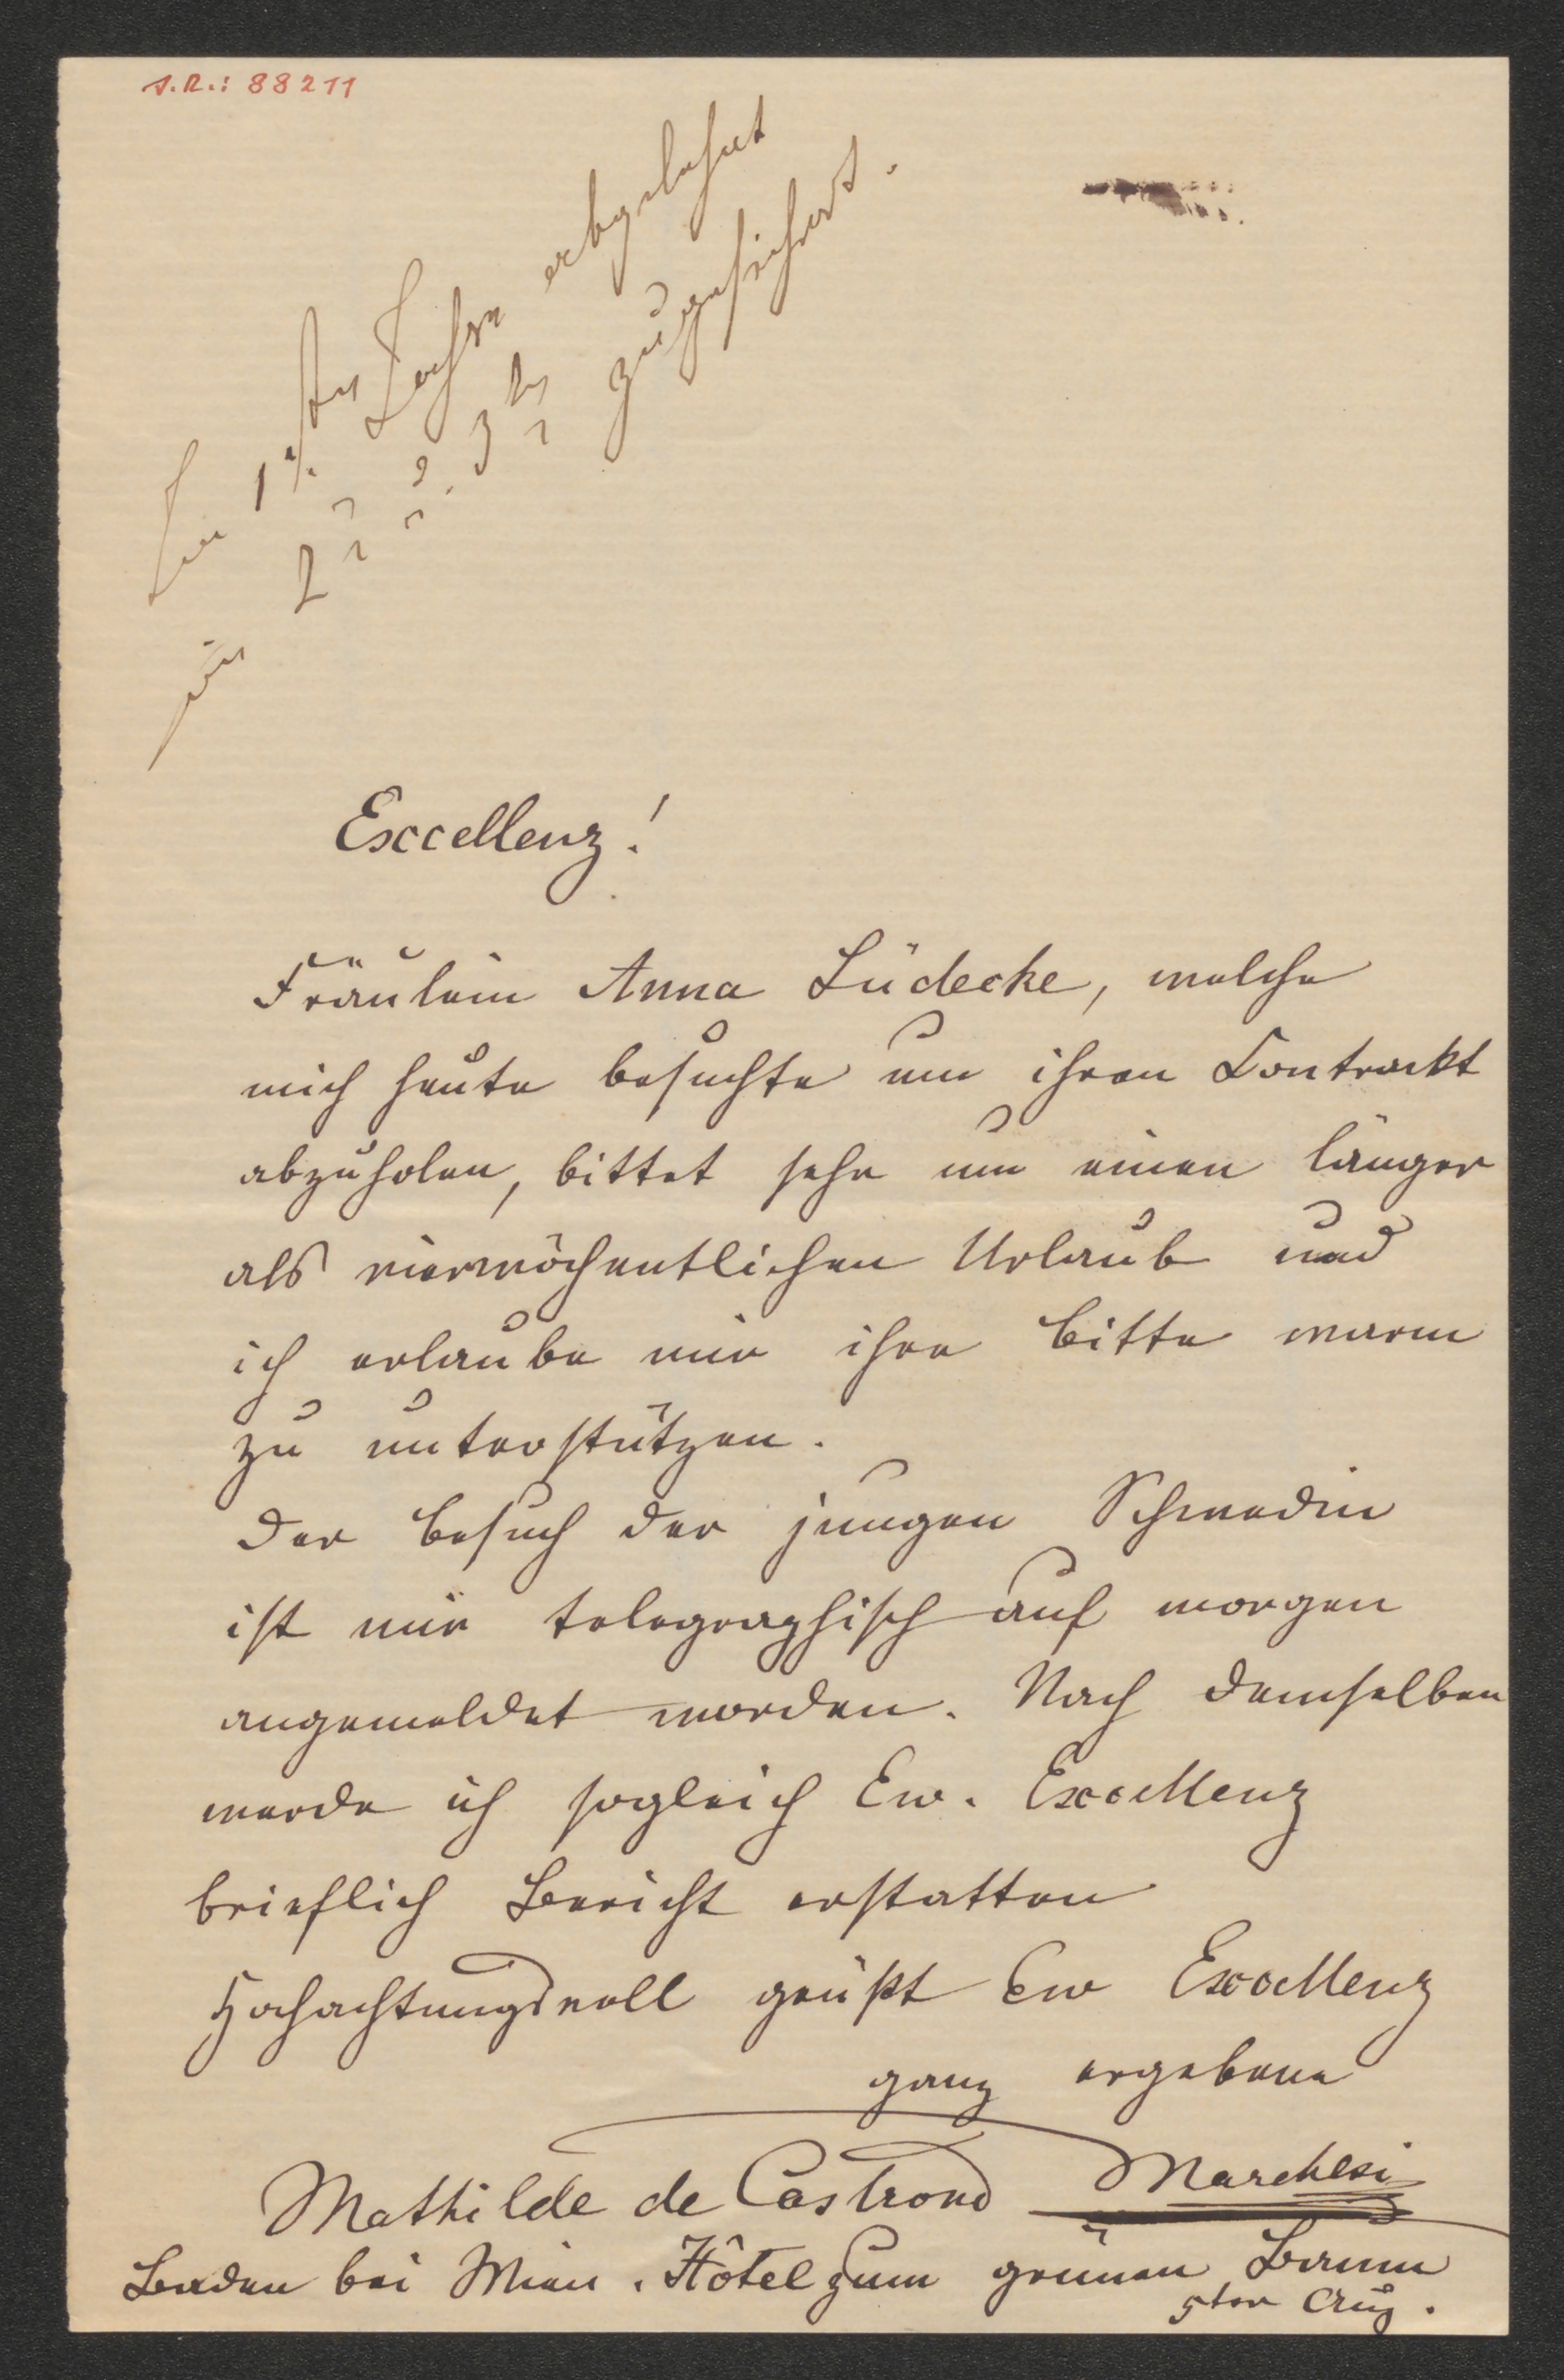 J.N.: 88211
Im 1. Jahre abgelehnt
für 2 u. 3 zugesichert.
Exccellenz!
Fräulein Anna Lüdecke, welche
mich heute besuchte um ihren Contrackt
abzuholen, bittet sehr um einen länger
als vierwöchentlichen Urlaub und
ich erlaube mir ihre Bitte warm
zu unterstützen.
Der Besuch der jungen Schwedin
ist mir telegraphisch auf morgen
angemeldet worden. Nach demselben
werde ich sogleich Ew. Excellenz
brieflich Bericht erstatten
Hochachtungsvoll grüßt Ew Excellenz
ganz ergebene
Mathilde de Castrone Marchesi
Baden bei Wien. Hôtel zum grünen Baum
5ter Aug.